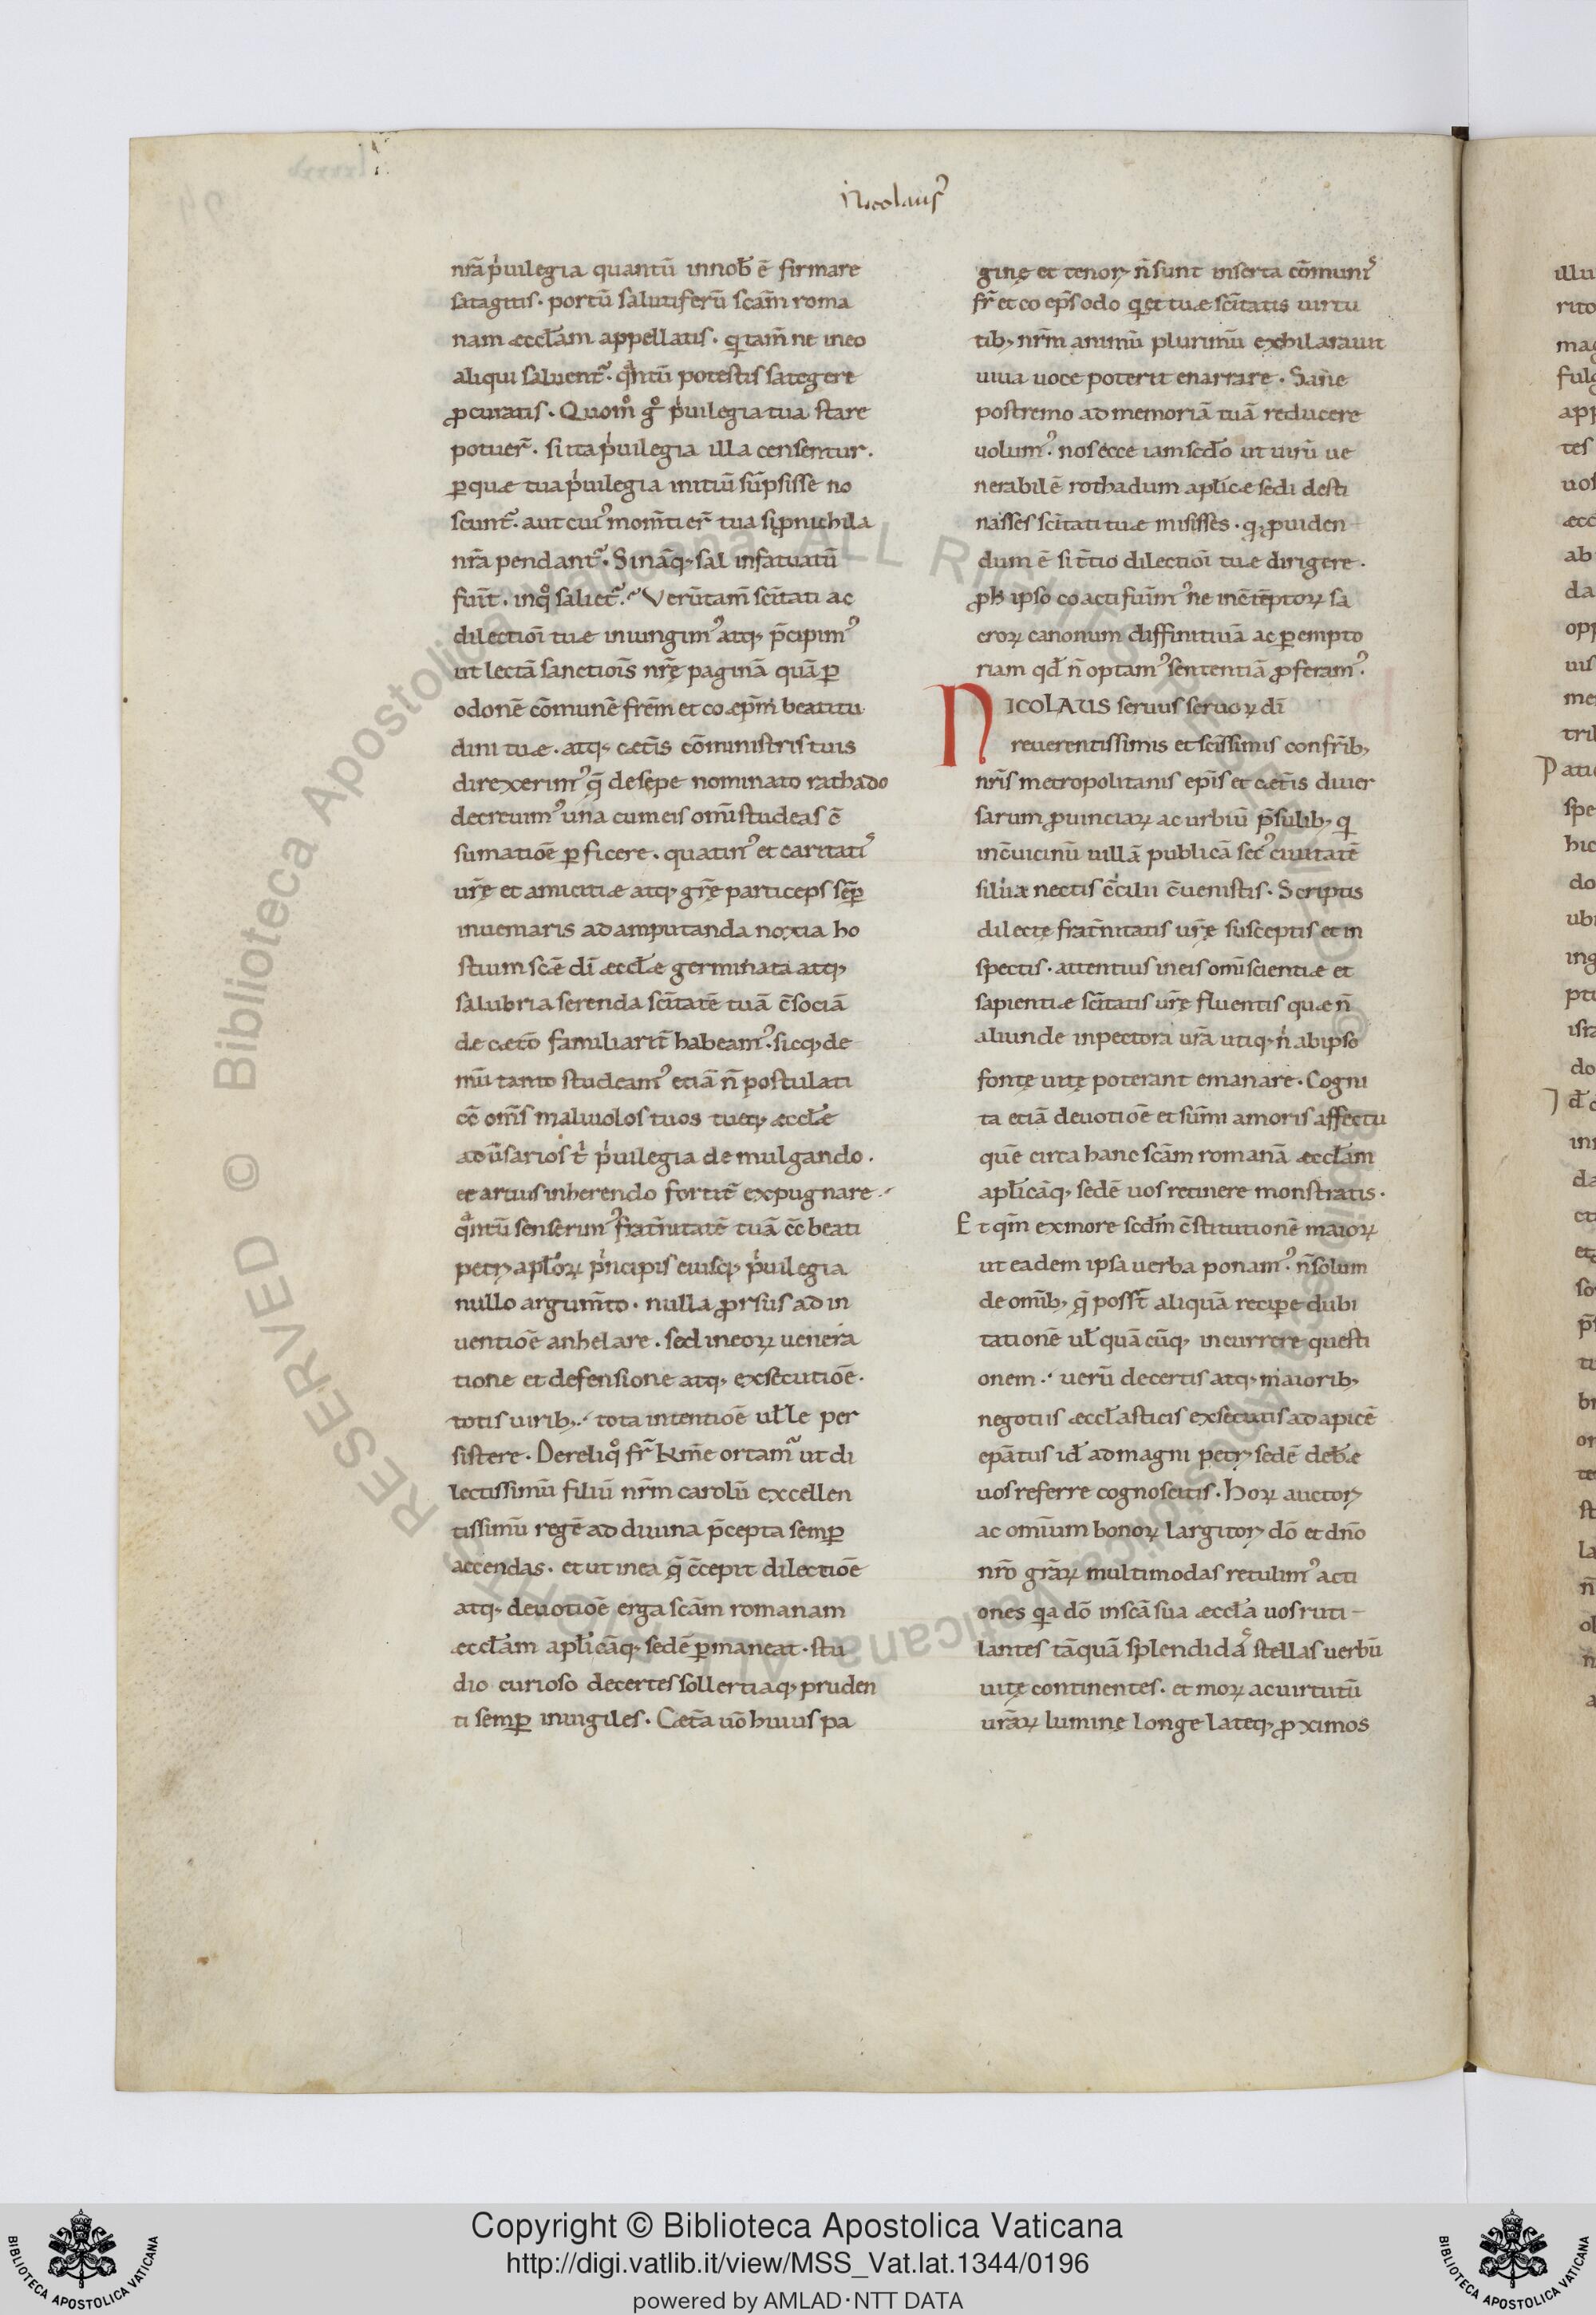 Nicolaus
nr̄a p̍uilegia quantū innob̄ ē firmare
satagitis· portū salutiferū scām roma
nam æccl̄am appellatis· q̨ tam̄ ne ineo
aliqui saluent᷑· qᷓntū potestis sategere
ꝓcuratis· Quom̊ g̊ p̍uilegia tua stare
potuer̄· si ita p̍uilegia illa censentur·
ꝑquæ tua p̍uilegia initiū sūpsisse no
scunt᷑· aut cuiꝰ mom̄ti er̄ tua si ꝓnichila
nr̄a pendant᷑· Sināq; sal infatuatū
fuīt· inq̊ saliet᷑· Verūtam̄ scītati ac
dilectiōi tuæ iniungimꝰ atq; p̄cipimꝰ
ut lectā sanctiōis nr̄ę paginā quā ꝑ
odonē cōmunē frēm et co æpm̄ beatitu
dini tuæ· atq; cæt̄is cōministris tuis
direxerimꝰ q̄ desępe nominato rathado
decreuimꝰ una cum eis om̄i studeas c̄
sumatiōe ꝑficere· quatinꝰ et caritatis
ur̄ę et amicitiæ atq; gr̄ę particeps sēꝑ
inuemaris ad amputanda noxia ho
stium scē dī æccl̄æ germinata atq;
salubria serenda scītatē tuā c̄sociā
de cæt̄o familiarit̄ habeamꝰ· sicq; de
mū tanto studeamꝰ etiā n̄ postulati
cē om̄s maliuolos tuos tuęq; æccl̄æ
adūsarios t̍ p̍uilegia demulgando·
et artius inherendo fortit̄ expugnare
qᷓntū senserimꝰ frat̄nitatē tuā c̄c beati
petrꝫ apl̄oꝝ p̍ncipis eiusq; p̍uilegia
nullo argum̄to· nulla ꝓrsus ad in
uentiōe anhelare· sed in eoꝝ uenera
tione et defensione atq; exsecutiōe·
totis uirib; tota intentiōe uel̄le per
sistere· Dereliq̊ fr̄ km̄e ortam᷑ ut di
lectissimū filiū nr̄m carolū excellen
tissimū regē ad diuina p̄cepta semꝑ
accendas· et ut in ea q̄ c̄cepit dilectiōe
atq; deuotiōe erga scām romanam
æccl̄am apl̄icāq; sedē ꝑmaneat· stu
dio curioso decertes sollertiaq; pruden
ti semꝑ inuigiles· Cæt̄a uō huius pa
ginę et tenorꝫ n̄ sunt inserta cōmunis
fr̄ et co ep̄s odo q̨ et tuæ scītatis uirtu
tib; nr̄m animū plurimū exhilarauit
uiua uoce poterit enarrare· Sane
postremo ad memoriā tuā reducere
uolumꝰ· nos ecce iam scd̄o ut uirū ue
nerabilē rothadum aplīcæ sedi desti
nasses scītati tuæ misisses· q; ꝓuiden
dum ē si t̄tio dilectiōi tuæ dirigere·
ꝓh ipso coacti fuim̄ꝰ ne in c̄tēptoꝝ sa
croꝝ canonum diffinitiuā ac ꝑempto
riam qd̄ n̄ optamꝰ sententiā ꝓferamꝰ·
NICOLAUS seruus seruoꝝ dī
reuerentissimis et scīssimis confr̄ib;
nr̄is metropolitanis ep̄is et cæt̄is diuer
sarum ꝓuinciaꝝ ac urbiū p̄sulib; q̨
in c̄uicinū uillā publicā sec̄ꝰ ciuitatē
siluæ nectis c̄cilii c̄uenistis· Scriptis
dilectę frat̄nitatis ur̄ę susceptis et in
spectis· attentius in eis om̄i scientiæ et
sapientiæ scītatis ur̄ę fluentis quæ n̄
aliunde in pectora ur̄a utiq; n̍ ab ipso
fonte uitę poterant emanare· Cogni
ta etiā deuotiōe et sūmi amoris affectu
quē circa hanc scām romanā æccl̄am
apl̄icāq; sedē uos retinere monstratis·
Et qm̄ ex more scdm̄ c̄stitutionē maioꝝ
ut eadem ipsa uerba ponamꝰ· n̄ solum
de om̄ib; q̄ poss̄t aliquā reciꝑe dubi
tationē ul̄ quā cūq; incurrere questi
onem· uerū de certis atq; maiorib;
negotiis æccl̄asticis exsecutis ad apicē
epāt̄us id̄ ad magni petrꝫ sedē deb̄æ
uos referre cognoscitis· Hoꝝ auctorꝫ
ac omīum bonoꝝ largitorꝫ dō et dn̄o
nr̄o gr̄aꝝ multimodas retulimꝰ acti
ones q̨a dō in scā sua æccl̄a uos ruti
lantes tāquā splendidas stellas uerbū
uitę continentes· et moꝝ ac uirtutū
ur̄aꝝ lumine longe lateq; ꝓximos
Copyright © Biblioteca Apostolica Vaticana
http://digi.vatlib.it/view/MSS_Vat.lat.1344/0196
powered by AMLAD·NTT DATA